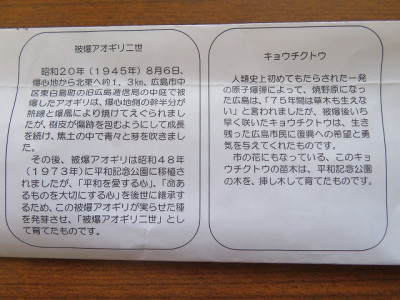 被爆アオギリ二世
昭和20年（1945年）8月6日、
爆心地から北東へ約1．3㎞、広島市中
区東白島町の旧広島逓信局の中庭で被
爆したアオギリは、爆心地側の幹半分が
熱線と爆風により焼けてえぐられまし
たが、樹皮が傷跡を包むようにして成長
を続け、焦土の中で青々と芽を吹きまし
た。
その後、被爆アオギリは昭和48年
（1973年）に平和記念公園に移植さ
れましたが、「平和を愛する心」、「命あ
るものを大切にする心」を後世に継承す
るため、この被爆アオギリが実らせた種
を発芽させ、「被爆アオギリ二世」とし
て育てたものです。
キョウチクトウ
人類史上初めてもたらされた一発
の原子爆弾によって、焼野原になっ
た広島は、「75年間は草木も生えな
い」と言われましたが、被爆後いち
早く咲いたキョウチクトウは、生き
残った広島市民に復興への希望と勇
気を与えてくれたものです。
市の花にもなっている、このキョ
ウチクトウの苗木は、平和記念公園
の木を、挿し木して育てたものです。